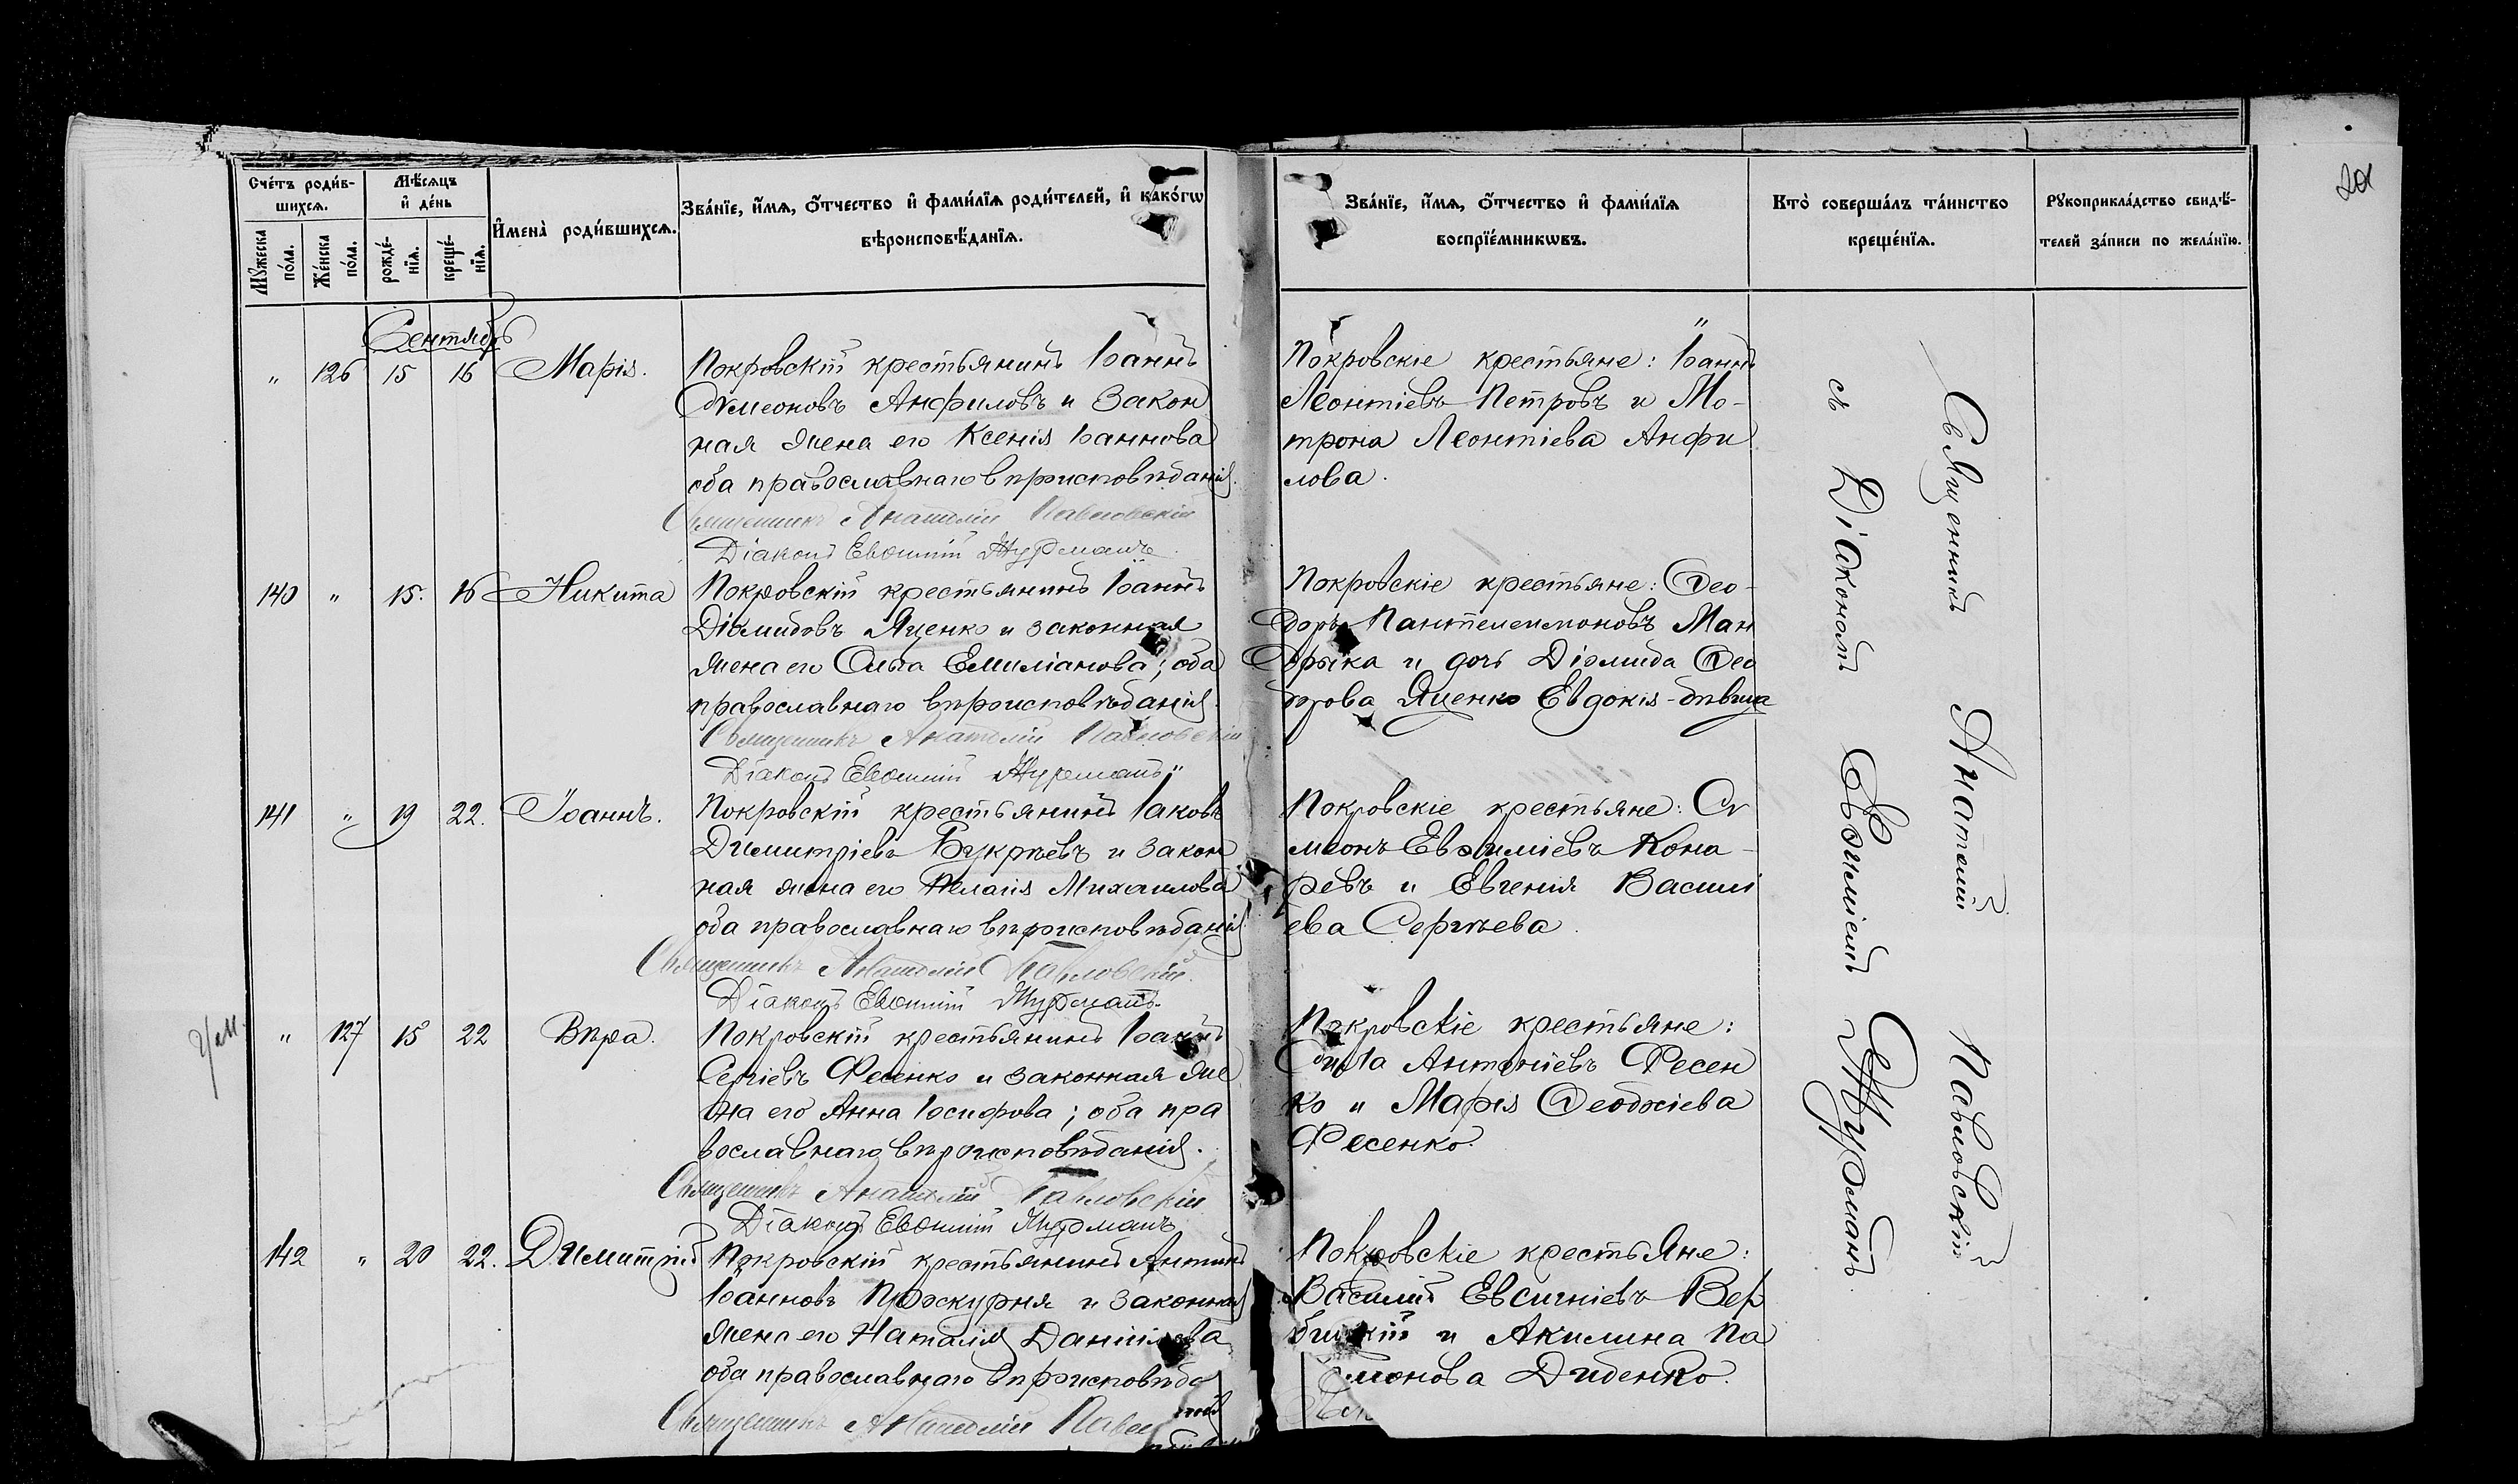 201
Сче́тъ роди́в-
шихсѧ.
Мѣ́сѧцъ
и҆ де́нь
И҆мена̀ роди́вшихсѧ.
Зва́нїе, и҆́мѧ, ѻ҆́тчество и҆ фами́лїѧ роди́телей, и҆ како́гѡ
вѣроисповѣ́данїѧ.
Зва́нїе, и҆́мѧ, ѻ҆́тчество и҆ фами́лїѧ
воспрїе́мникѡвъ.
Кто̀ соверша́лъ та́инство
креще́нїѧ.
Рꙋкоприкла́дство свидѣ́-
телей за́писи по жела́нїю.
Мꙋ́жеска
по́ла.
Же́нска
по́ла.
рожде́-
нїѧ.
креще́-
нїѧ.
Сентябрь
" 126 15 16 Марія.
Покровскій крестьянинъ Іоаннъ
Сѵмеоновъ Анфиловъ и закон
ная жена его Ксенія Іоаннова
оба православнаго вѣроисповѣданія.
Священникъ Анатолій Павловскій
Діаконъ Евѳимій Журманъ
Покровскіе крестьяне: Іоаннъ
Леонтіевъ Петровъ и Мо-
трона Леонтіева Анфи
лова.
140 " 15. 16 Никита
Покровскій крестьянинъ Іоаннъ
Діомидовъ Яценко и законная
жена его Ольга Емиліанова; оба
православнаго вѣроисповѣданія.
Священникъ Анатолій Павловскій
Діаконъ Евѳимій Журманъ
Покровскіе крестьяне: Ѳео-
доръ Пантелеимоновъ Ман
дрыка и дочь Діомида Ѳео
дорова Яценко Евдокія-дѣвица
141 " 19 22. Іоаннъ.
Покровскій крестьянинъ Іаковъ
Димитріевъ Букрѣевъ и закон
ная жена его Пелагія Михаилова
оба православнаго вѣроисповѣданія
Священникъ Анатолій Павловскій.
Діаконъ Евѳимій Журманъ.
Покровскіе крестьяне: Сѵ
меонъ Евѳиміевъ Кона-
ревъ и Евгенія Василі
ева Сергѣева.
Ум.
" 127 15 22 Вѣра.
Покровскій крестьянинъ Іоаннъ
Сергіевъ Фесенко и законная же
на его Анна Іосифова; оба пра
вославнаго вѣроисповѣданія.
Священникъ Анатолій Павловскій
Діаконъ Евѳимій Журманъ
Покровскіе крестьяне:
Антоніевъ Фесен
ко и Марія Ѳеодосіева
Фесенко.
142 " 20 22. Димитрій
Покровскій крестьянинъ Антоній
Іоанновъ Проскурня и законная
жена его Наталія Даніилова
оба православнаго вѣроисповѣда
Священникъ Анатолій Павл
Покровскіе крестьяне:
Василій Евсигніевъ Вер
бицкій и Акилина Па
монова Диденко.
Священникъ Анатолій Павловскій
съ Діакономъ Евѳиміемъ Журманъ